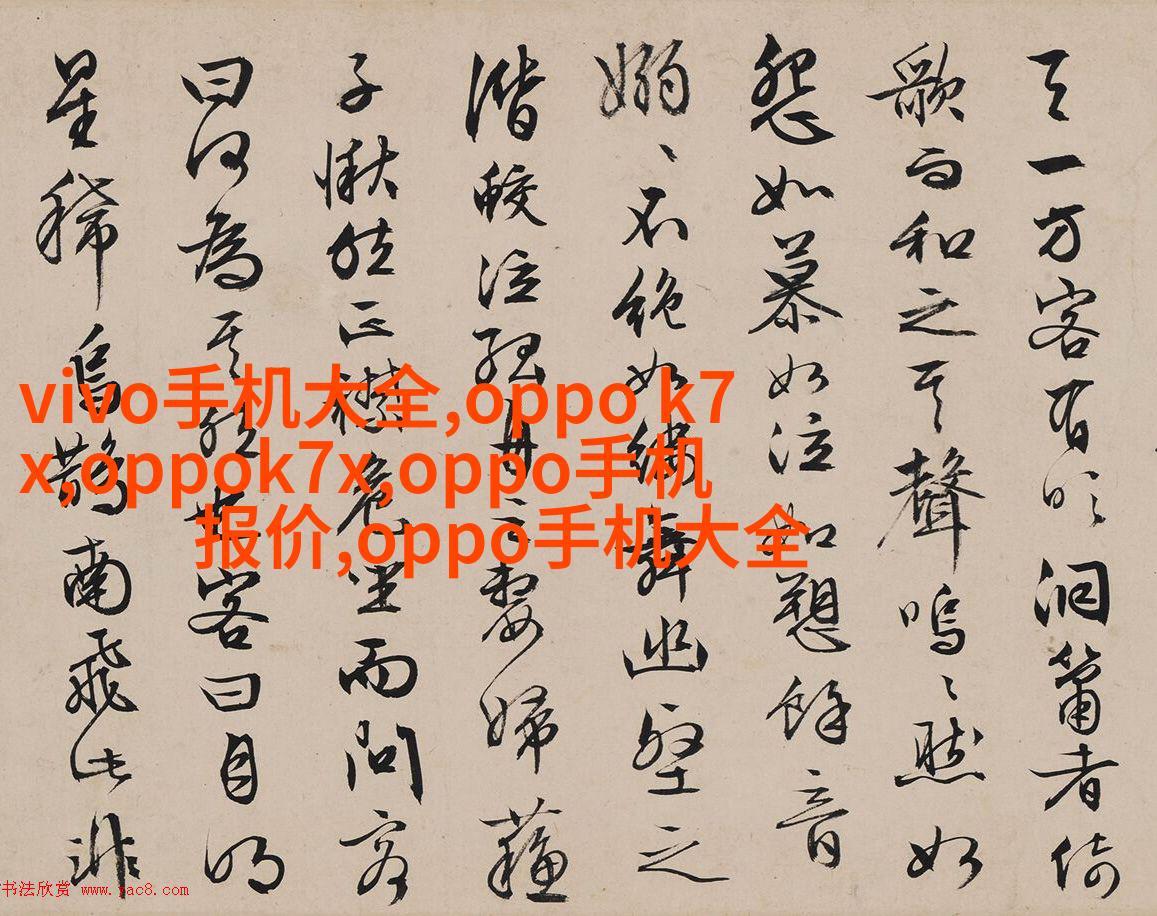 天一方客有吹洞簫者倚
歌而和之其聲嗚〻然如
怨如慕如泣如愬餘音
嫋〻不絕如縷舞幽壑之
潛蛟泣孤舟之嫠婦蘇
子愀然正襟危坐而問客
曰何為其然也客曰月明
星稀烏鵲南飛此非
vivo手机大全,oppo k7
x,oppok7x,oppo手机
报价,oppo手机大全
书法欣赏 www.yac8.com